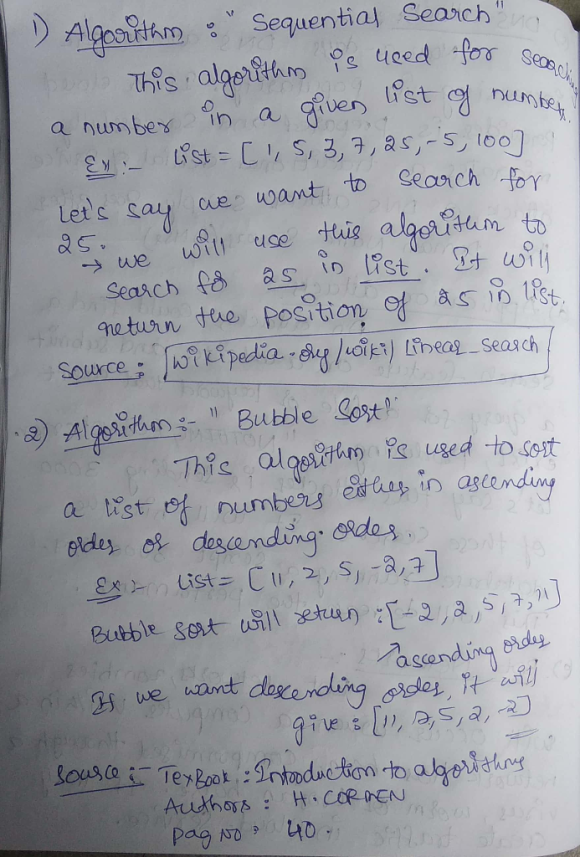 1) Algorithm : "Sequential Search"
This algorithm is used for searching
a number in a given list of numbers.
Ex:- List = [1, 5, 3, 7, 25, -5, 100]
Let's say we want to search for
25.
→ we will use this algorithm to
search for 25 in list. It will
return the position of 25 in list.
Source : wikipedia.org/wiki/Linear_Search
2) Algorithm :- "Bubble Sort"
This algorithm is used to sort
a list of numbers either in ascending
order or descending order.
Ex :- List = [11, 2, 5, -2, 7]
Bubble sort will return : [-2, 2, 5, 7, 11]
↗ascending order
If we want descending order, it will
give : [11, 7, 5, 2, -2]
Source :- TexBook : Introduction to algorithms
Authors : H. CORMEN
Pag No : 40.